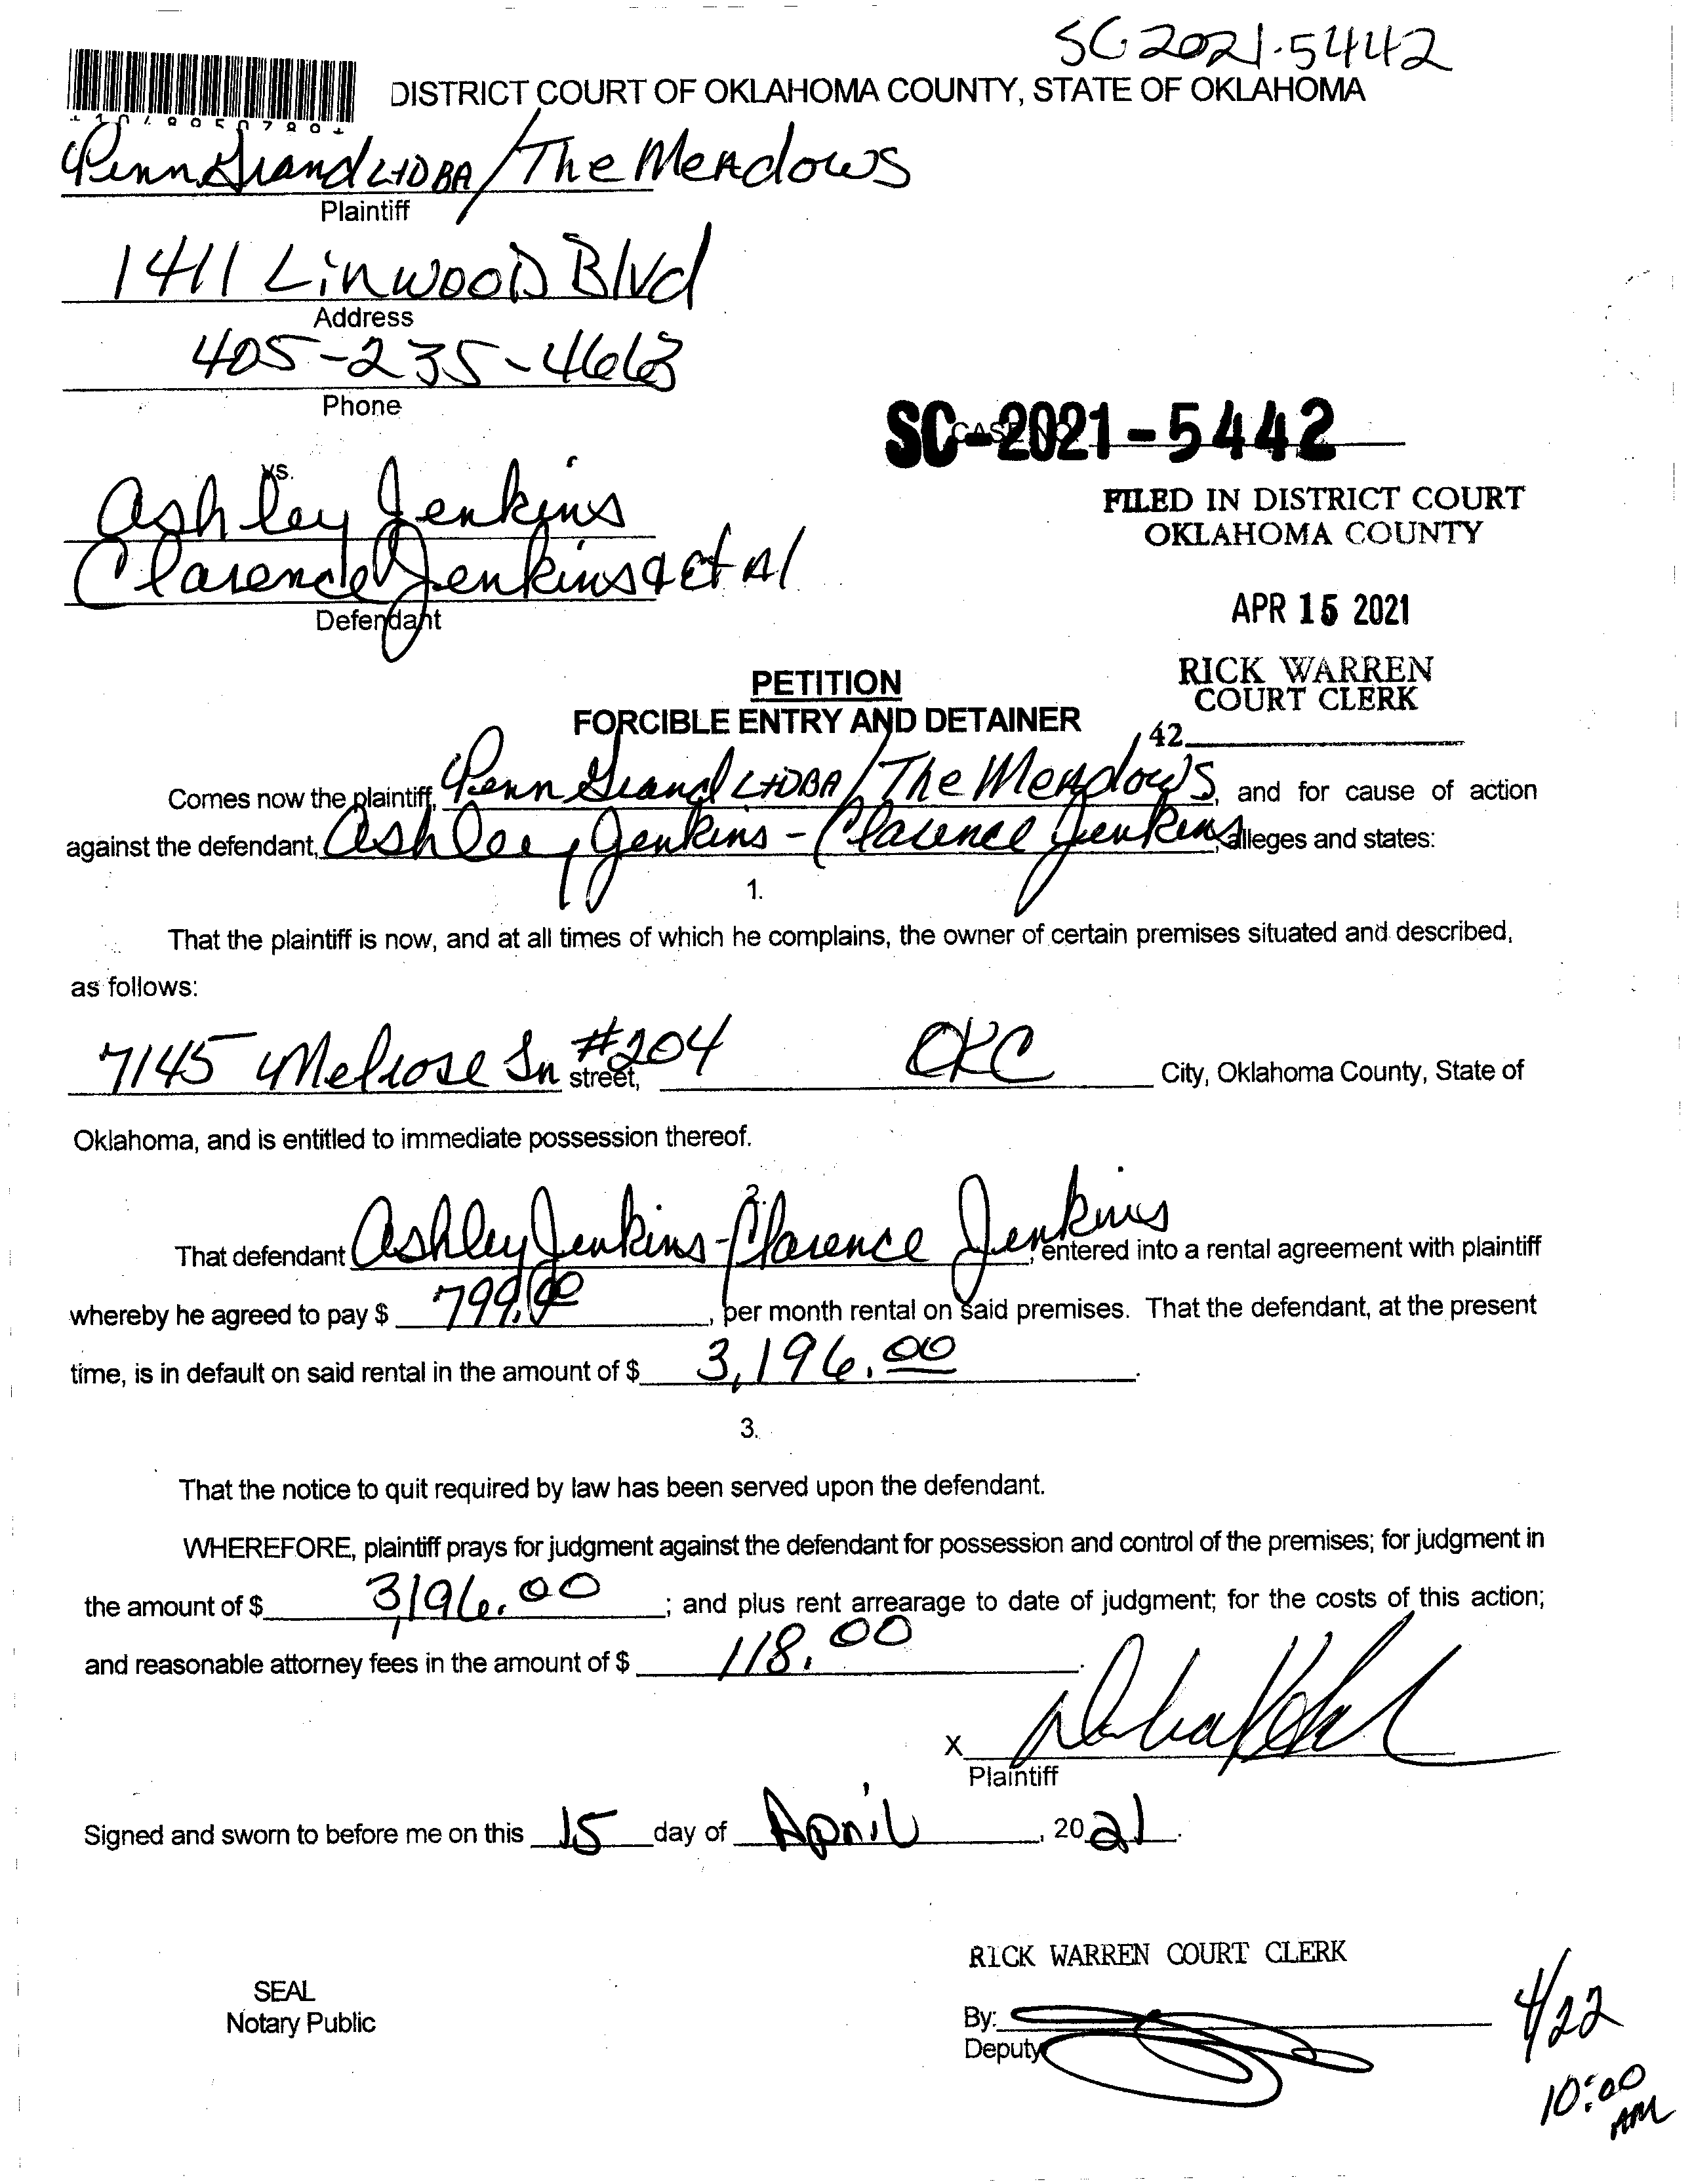 SC 2021-5442
DISTRICT COURT OF OKLAHOMA COUNTY, STATE OF OKLAHOMA
Penn Grand LTDBA/The Meadows
Plaintiff
1411 Linwood Blvd
Address
405-235-4663
Phone
SC-2021-5442
vs.
Ashley Jenkins
FILED IN DISTRICT COURT
OKLAHOMA COUNTY
Clarence Jenkins & et Al
Defendant
APR 15 2021
RICK WARREN
COURT CLERK
PETITION
FORCIBLE ENTRY AND DETAINER
42
Comes now the plaintiff, Penn Grand LTDBA/The Meadows, and for cause of action
against the defendant, Ashley Jenkins - Clarence Jenkins, alleges and states:
1.
That the plaintiff is now, and at all times of which he complains, the owner of certain premises situated and described,
as follows:
7145 Melrose Ln #204 street, OKC City, Oklahoma County, State of
Oklahoma, and is entitled to immediate possession thereof.
2.
That defendant Ashley Jenkins - Clarence Jenkins, entered into a rental agreement with plaintiff
whereby he agreed to pay $ 799.00, per month rental on said premises. That the defendant, at the present
time, is in default on said rental in the amount of $ 3,196.00.
3.
That the notice to quit required by law has been served upon the defendant.
WHEREFORE, plaintiff prays for judgment against the defendant for possession and control of the premises; for judgment in
the amount of $ 3,196.00; and plus rent arrearage to date of judgment; for the costs of this action;
and reasonable attorney fees in the amount of $ 118.00.
X
Plaintiff
Signed and sworn to before me on this 15 day of April, 2021.
RICK WARREN COURT CLERK
SEAL
Notary Public
By:
Deputy
4/22
10:00
AM